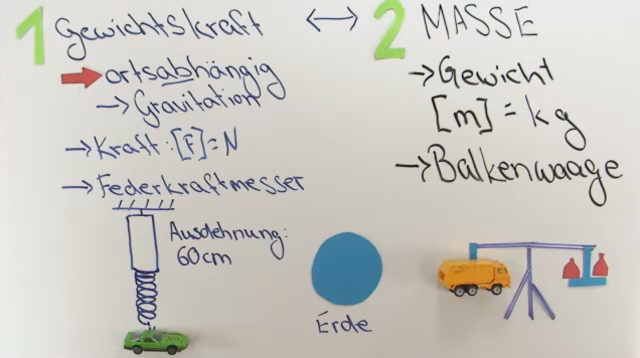 1 Gewichtskraft ↔ 2 MASSE
→ ortsabhängig
→ Gravitation
→ Kraft: [F] = N
→ Federkraftmesser
Ausdehnung:
60cm
Erde
→ Gewicht
[m] = kg
→ Balkenwaage